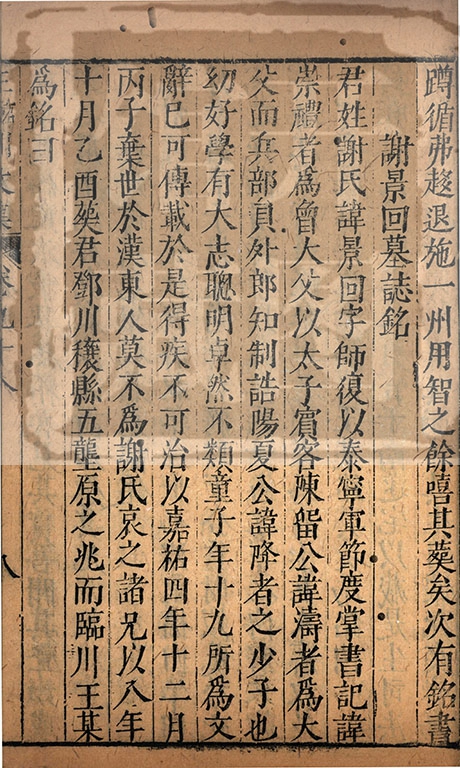 蹲循弗趍退施一州用智之餘嘻其葬矣次有銘書
謝景回墓誌銘
君姓謝氏諱景回字師復以泰寧軍節度掌書記諱
崇禮者爲曾大父以太子賓客陳留公諱濤者爲大
父而兵部員外郎知制誥陽夏公諱降者之少子也
幼好學有大志聰明卓然不類童子年十九所爲文
辭已可傳載於是得疾不可治以嘉祐四年十二月
丙子棄世於漢東人莫不爲謝氏哀之諸兄以八年
十月乙酉葬君鄧川穰縣五壟原之兆而臨川王某
爲銘曰
文集 卷九十八 八